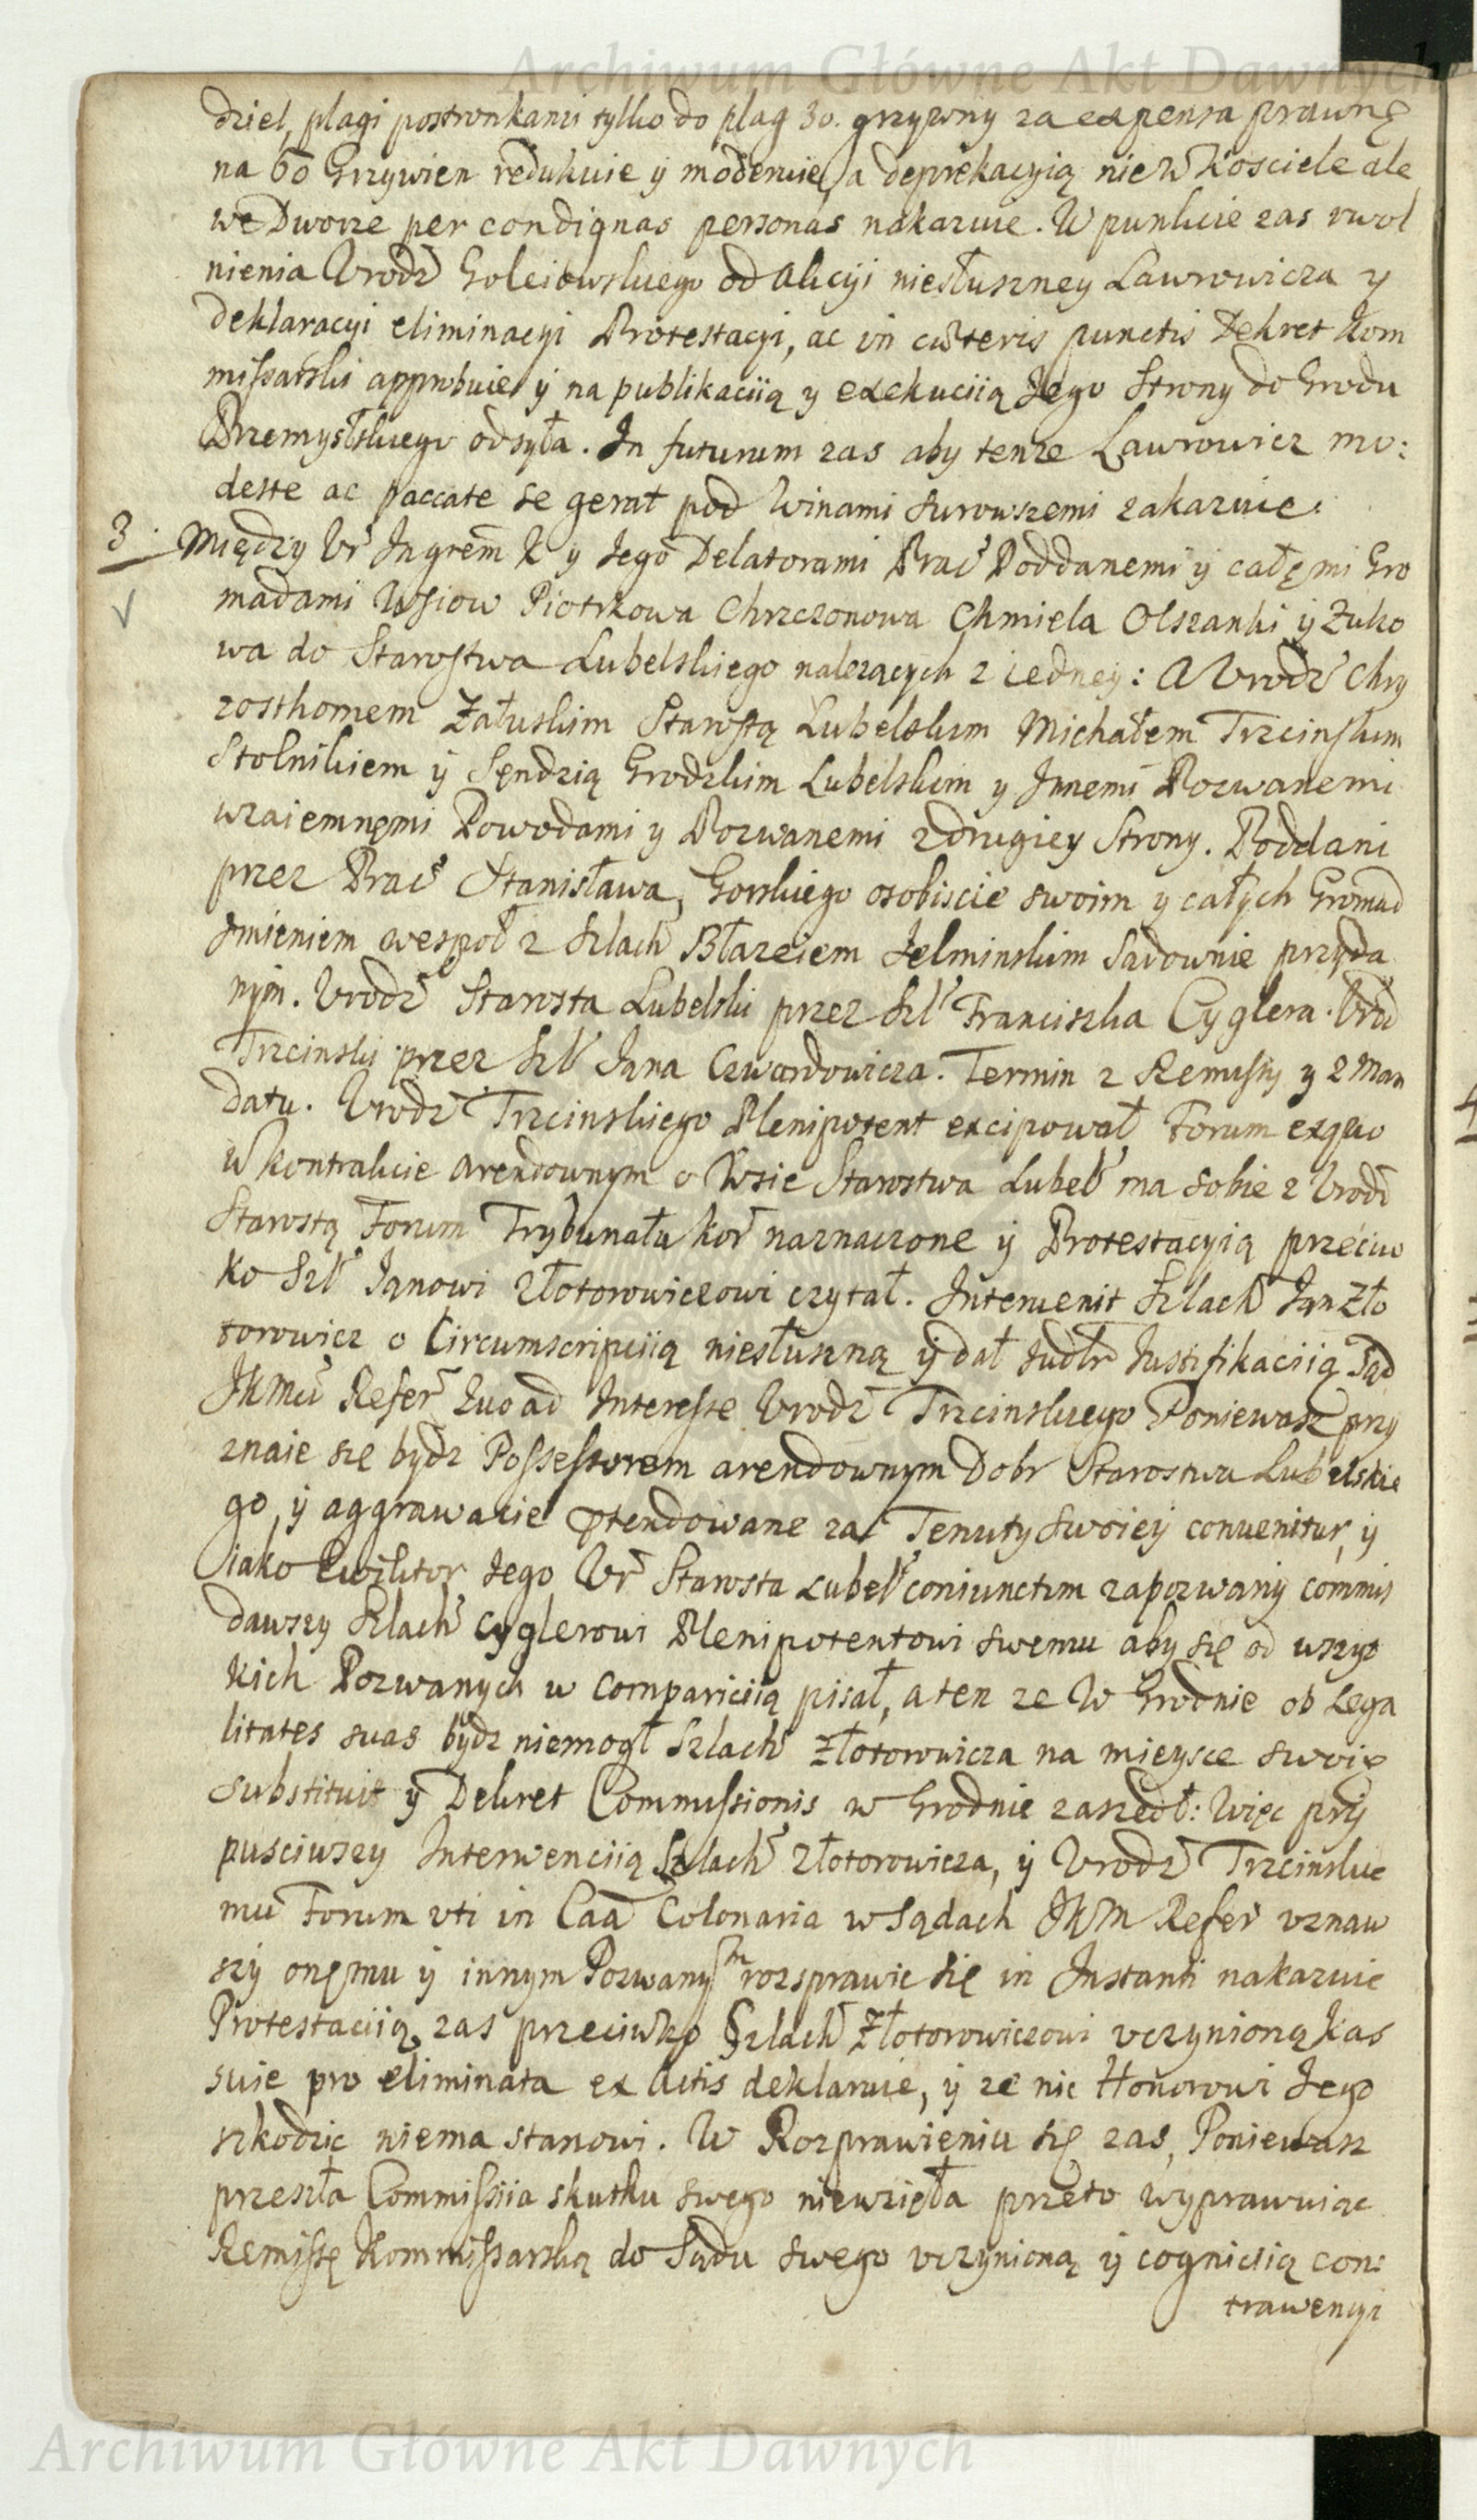 Archiwum Główne Akt Dawnych
dziel, plagi postronkami tylko do plag 30. grzywny za expensa prawnę
na 60 Grzywien redukuie ÿ moderuie, a deprekacyią nie w Kosciele ale
we Dworze per condignas personas nakazuie. W punkcie zas vwol
nienia Vrodz Goleiowskiego od Akcÿi niesłuszney Lawrowicza y
deklaracyi eliminacyi Protestacyi, ac in cæteris punctis Dekret Kom
missarski approbuie, ÿ na publikaciią y exekuciią Jego Strony do Grodu
Przemyslskiego odsyła. In futurum zas aby tenze Lawrowicz mo:
deste ac paccate se gerat pod Winami surowszemi zakazuie.
3. Między Vr Ingrem K y Jego Delatorami Prac Poddanemi ÿ całęmi Gro
madami Wsiow Piotrkowa Chrzczonowa Chmiela Olszanki ÿ Zuko
wa do Starostwa Lubelskiego nalezących z iedney: A Vrodz Chry
zosthomem Załuskim Starostą Lubelskim Michałem Trzcinskim
Stolnikiem ÿ Sędzią Grodzkim Lubelskim y Innemi Pozwanemi
wzaiemnęmi Powodami y Pozwanemi z drugiey Strony. Poddani
przez Prac Stanisława Gorskiego osobiscie swoim y całych Gromad
Imieniem wespoł z Szlach Błazeiem Jelminskim Sadownie przyda
nÿm. Vrodz Starosta Lubelski przez Szl Franciszka Cyglera. Vrod
Trzcinski przez Szl Jana Czwardowicza. Termin z Remissy y z Man
datu. Vrodz Trzcinskiego Plenipotent excipował Forum exquo
w kontrakcie arendownym o Wsie Starostwa Lubel ma sobie z Vrodz
Starostą Forum Trybunału Kor naznaczone ÿ Protestacyią przeciw
ko Szl Janowi Złotorowiczowi czytał. Intervenit Szlach Jan Zło
torowicz o Circumscripciią niesłuszną ÿ dał Justifikaciią Sąd
JKMci Refer Quoad Interesse Vrodz Trzcinskiego Poniewasz przy
znaie się bydz Possessorem arendownym Dobr Starostwa Lubelskie
go, ÿ aggrawacie ptendowane za Tenuty swoieÿ convenitur, ÿ
iako Ewiktor Jego Vr Starosta Lubel coniunctim zapozwanÿ commis
dawszy Szlach Cyglerowi Plenipotentowi swemu aby się od wszys
kich Pozwanych w compariciią pisał, a ten ze W Grodnie ob Lega
litates suas bÿdz niemogł Szlach Złotorowicza na mieysce swoię
substituit ÿ Dekret Commissionis w Grodnie zaszedł: Więc przÿ
pusciwszy Interwenciią Szlach Złotorowicza, ÿ Vrodz Trzcinskie
mu Forum vti in Caa Colonaria w Sądach JKM Refer vznaw
szÿ onęmu ÿ innym Pozwanym rozsprawic się in Instanti nakazuie
Protestaciią zas przeciwko Szlach Złotorowiczowi vczynioną kas
suie pro eliminata ex Actis deklaruie, ÿ ze nic Honorowi Jego
szkodzic niema stanowi. W Rozprawieniu się zas, Poniewasz
przeszła Commissiia skutku swego niewzięła przeto wyprawuiąc
Remissę Kommissarską do Sądu swego vczynioną ÿ cogniciią con:
trawencyi
Archiwum Główne Akt Dawnych